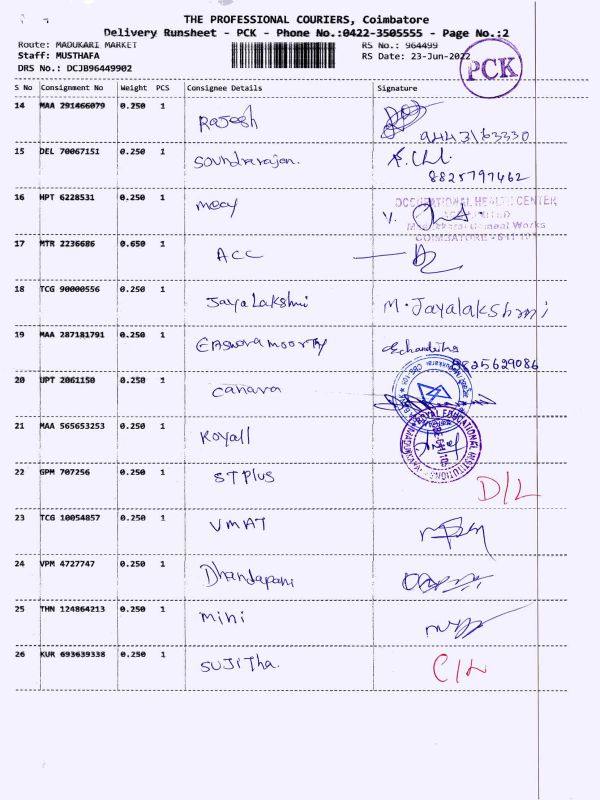 THE PROFESSIONAL COURIERS, Coimbatore
Delivery Runsheet - PCK - Phone No.:0422-3505555 - Page No.:2
Route: MADUKARI MARKET RS No.: 964499
Staff: MUSTHAFA RS Date: 23-Jun-2022
DRS No.: DCJB96449902
PCK
S No Consignment No Weight PCS Consignee Details Signature
14 MAA 291466079 0.250 1 Rajesh
9443163330
15 DEL 70067151 0.250 1 Soundrarajan.
8825797462
16 HPT 6228531 0.250 1
OCCUPATIONAL HEALTH CENTER
COIMBATORE
17 MTR 2236686 0.650 1 ACC
18 TCG 90000556 0.250 1 Jaya Lakshmi M. Jayalakshmi
19 MAA 287181791 0.250 1 Easwara moorthy
8825629086
20 UPT 2061150 0.250 1 Canara
21 MAA 565653253 0.250 1 Royall
ROYAL EDUCATIONAL INSTITUTIONS
22 GPM 707256 0.250 1 ST Plus D/L
23 TCG 10054857 0.250 1 VMAT
24 VPM 4727747 0.250 1 Dhandapani
25 THN 124864213 0.250 1 mini
26 KUR 693639338 0.250 1 SUJITha.